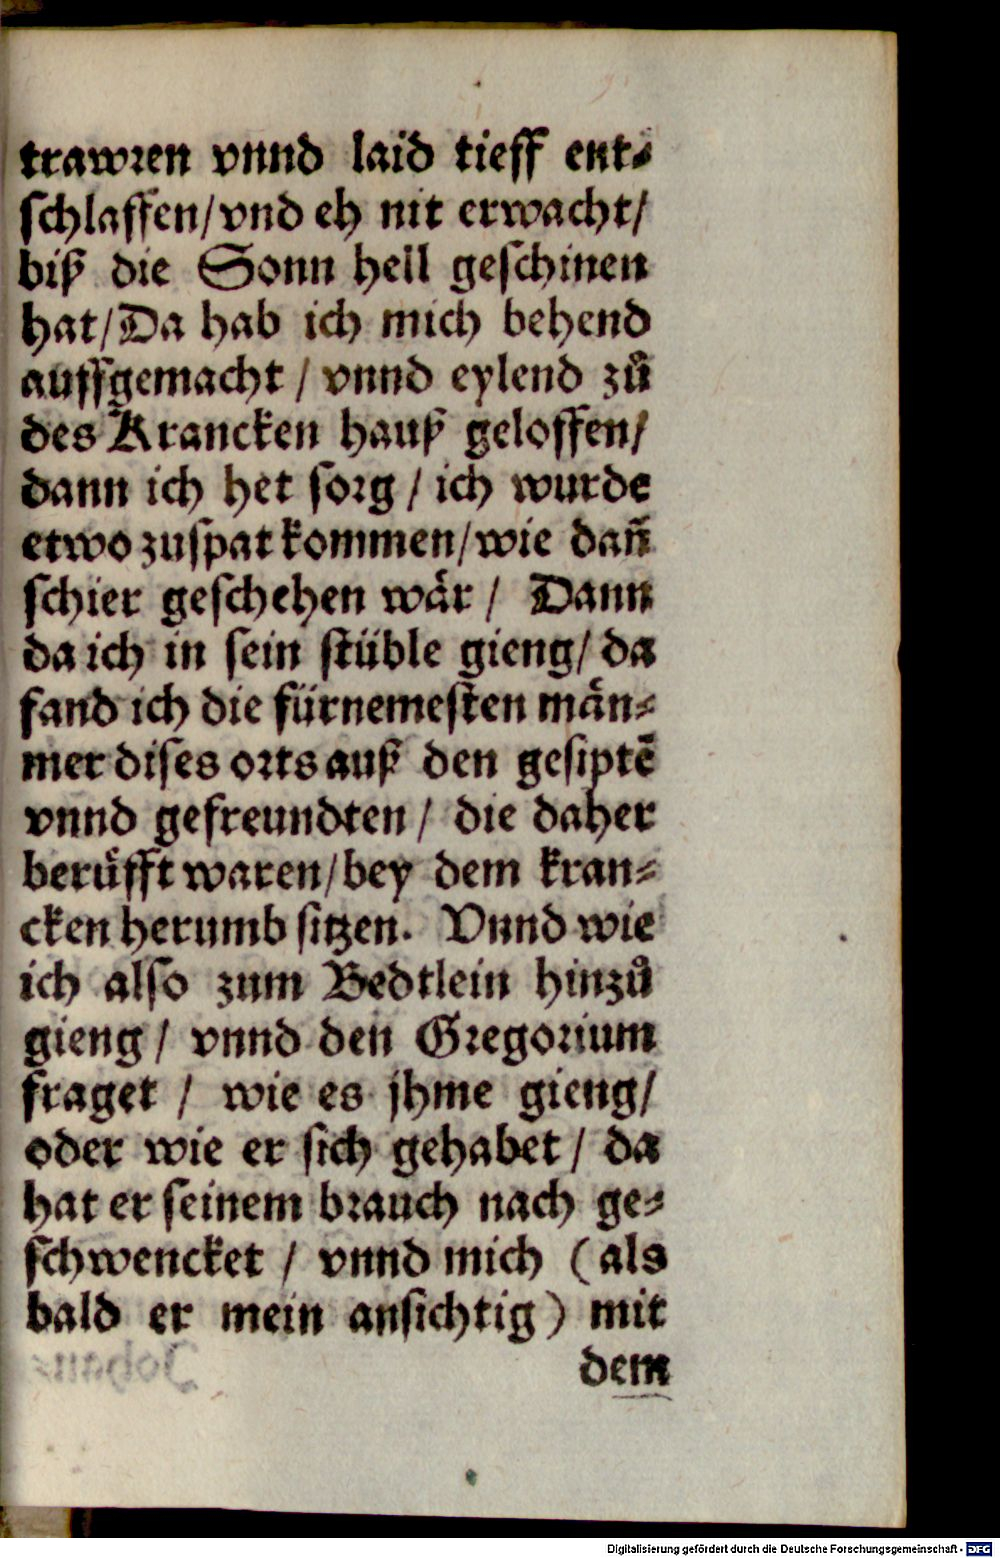 trawren vnnd laid tieff ent⸗
ſchlaffen/vnd eh nit erwacht/
biß die Sonn hell geſchinen
hat/Da hab ich mich behend
auffgemacht / vnnd eylend zů
des Krancken hauß geloffen/
dann ich het ſorg / ich wurde
etwo zuſpat kommen/wie dañ
ſchier geſchehen wår / Dann
da ich in ſein ſtüble gieng/ da
fand ich die fürnemeſten mån⸗
mer diſes orts auß den geſiptē
vnnd gefreundten / die daher
berůfft waren/bey dem kran⸗
cken herumb ſitzen. Vnnd wie
ich alſo zum Bedtlein hinzů
gieng / vnnd den Gregorium
fraget / wie es jhme gieng/
oder wie er ſich gehabet / da
hat er ſeinem brauch nach ge⸗
ſchwencket / vnnd mich (als
bald er mein anſichtig) mit
dem
Digitalisierung gefördert durch die Deutsche Forschungsgemeinschaft - DFG